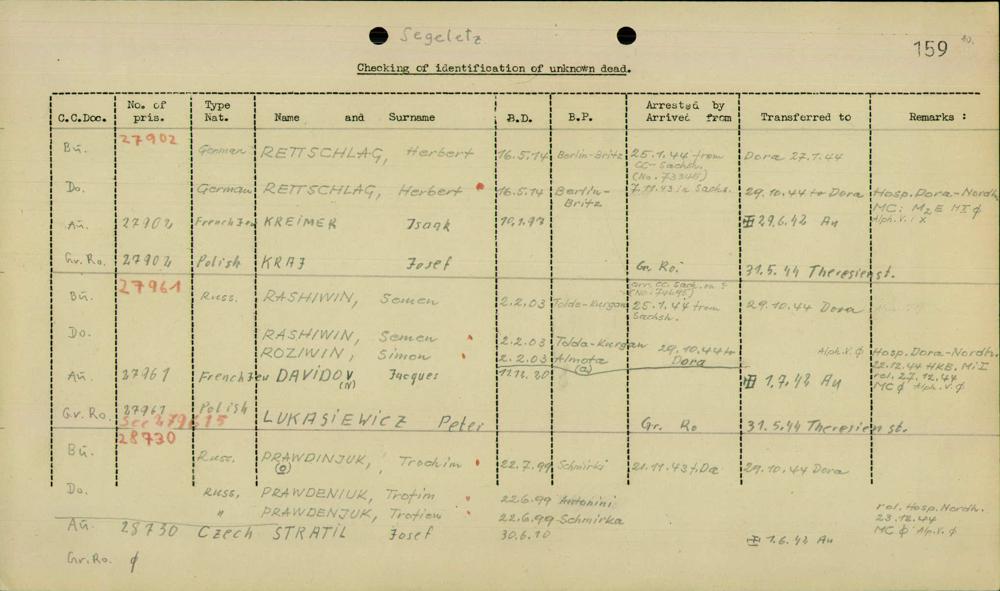 Segeletz
159
Checking of identification of unknown dead.
C.C.Doc. No. of pris. Type Nat. Name and Surname B.D. B.P. Arrested by Arrived from Transferred to Remarks :
27902
Bu. German RETTSCHLAG, Herbert 16.5.14 Berlin-Britz 25.1.44 from Dora 27.1.44
CC-Sachsh.
(No. 73345)
Do. German RETTSCHLAG, Herbert 16.5.14 Berlin-Britz 7.11.43 in Sachs. 29.10.44 to Dora Hosp. Dora-Nordh.
MC:
Au. 27902 French Jew KREIMER Isaak 29.6.42 Au
Gr. Ro. 27902 Polish KRAJ Josef Gr. Ro. 31.5.44 Theresienst.
27961
Bu. Russ. RASHIWIN, Semen 2.2.03 Tolde-Kurgan 25.1.44 from Sachsh. 29.10.44 Dora
Do. RASHIWIN, Semen 2.2.03 Tolda-Kurgan 29.10.44 to Dora
ROZIWIN, Simon 2.2.03 Almota (a) Alph.V. φ Hosp. Dora-Nordh.
22.12.44 HKB.
rel. 27.12.44
MC φ Alph.V. φ
Au. 27961 French Jew DAVIDOV (W) Jacques 11.12.20 1.7.42 Au
Gr. Ro. 27961 Polish LUKASIEWICZ Peter Gr. Ro 31.5.44 Theresienst.
28730
Bu. Russ. PRAWDINJUK, (o) Trochim 22.7.99 Schmirki 21.11.43 29.10.44 Dora
Do. Russ. PRAWDENIUK, Trofim 22.6.99 Antonini
" PRAWDENJUK, Trofiem 22.6.99 Schmirka rel. Hosp. Nordh.
23.12.44
MC φ Alp.V. φ
Au. 28730 Czech STRATIL Josef 30.6.10 1.6.42 Au
Gr. Ro. φ